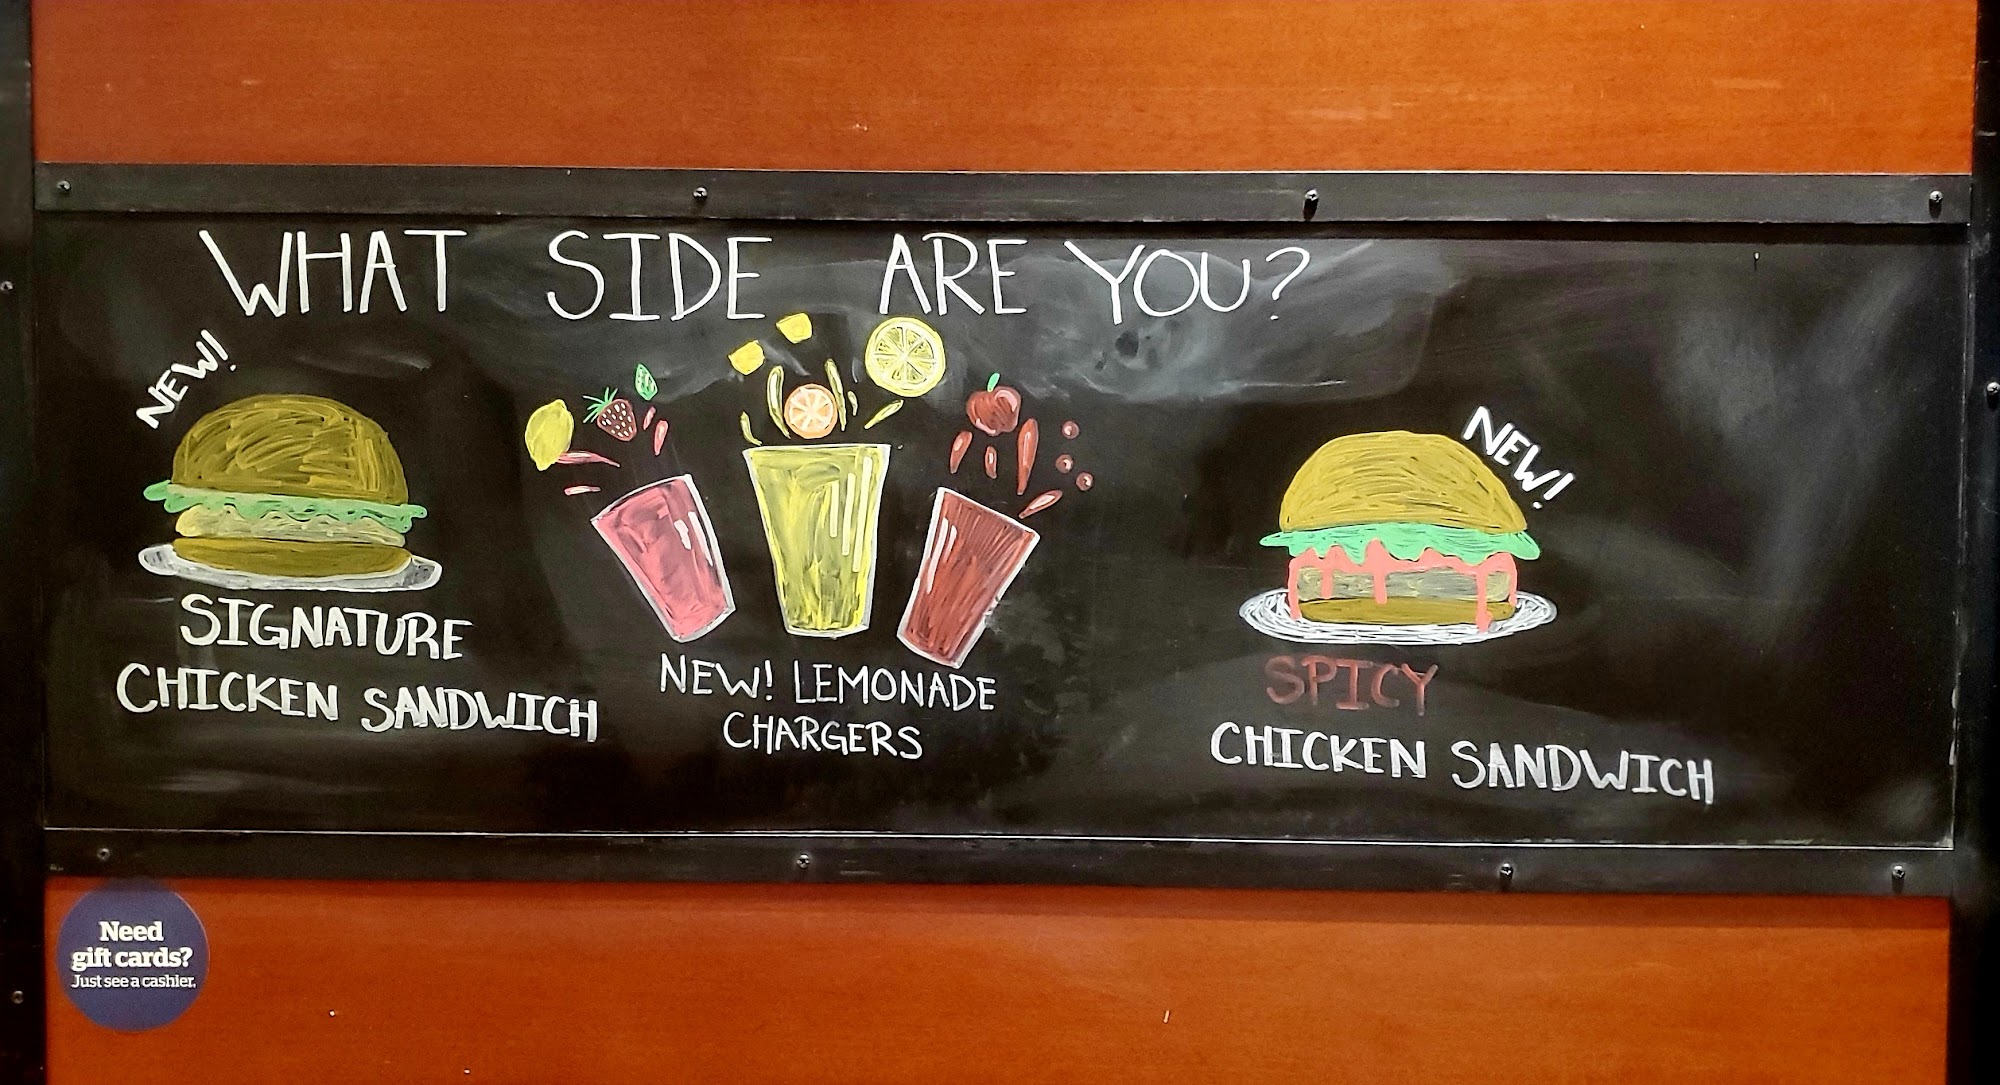 WHAT SIDE ARE YOU?
NEW!
SIGNATURE
CHICKEN SANDWICH
NEW! LEMONADE
CHARGERS
NEW!
SPICY
CHICKEN SANDWICH
Need
gift cards?
Just see a cashier.